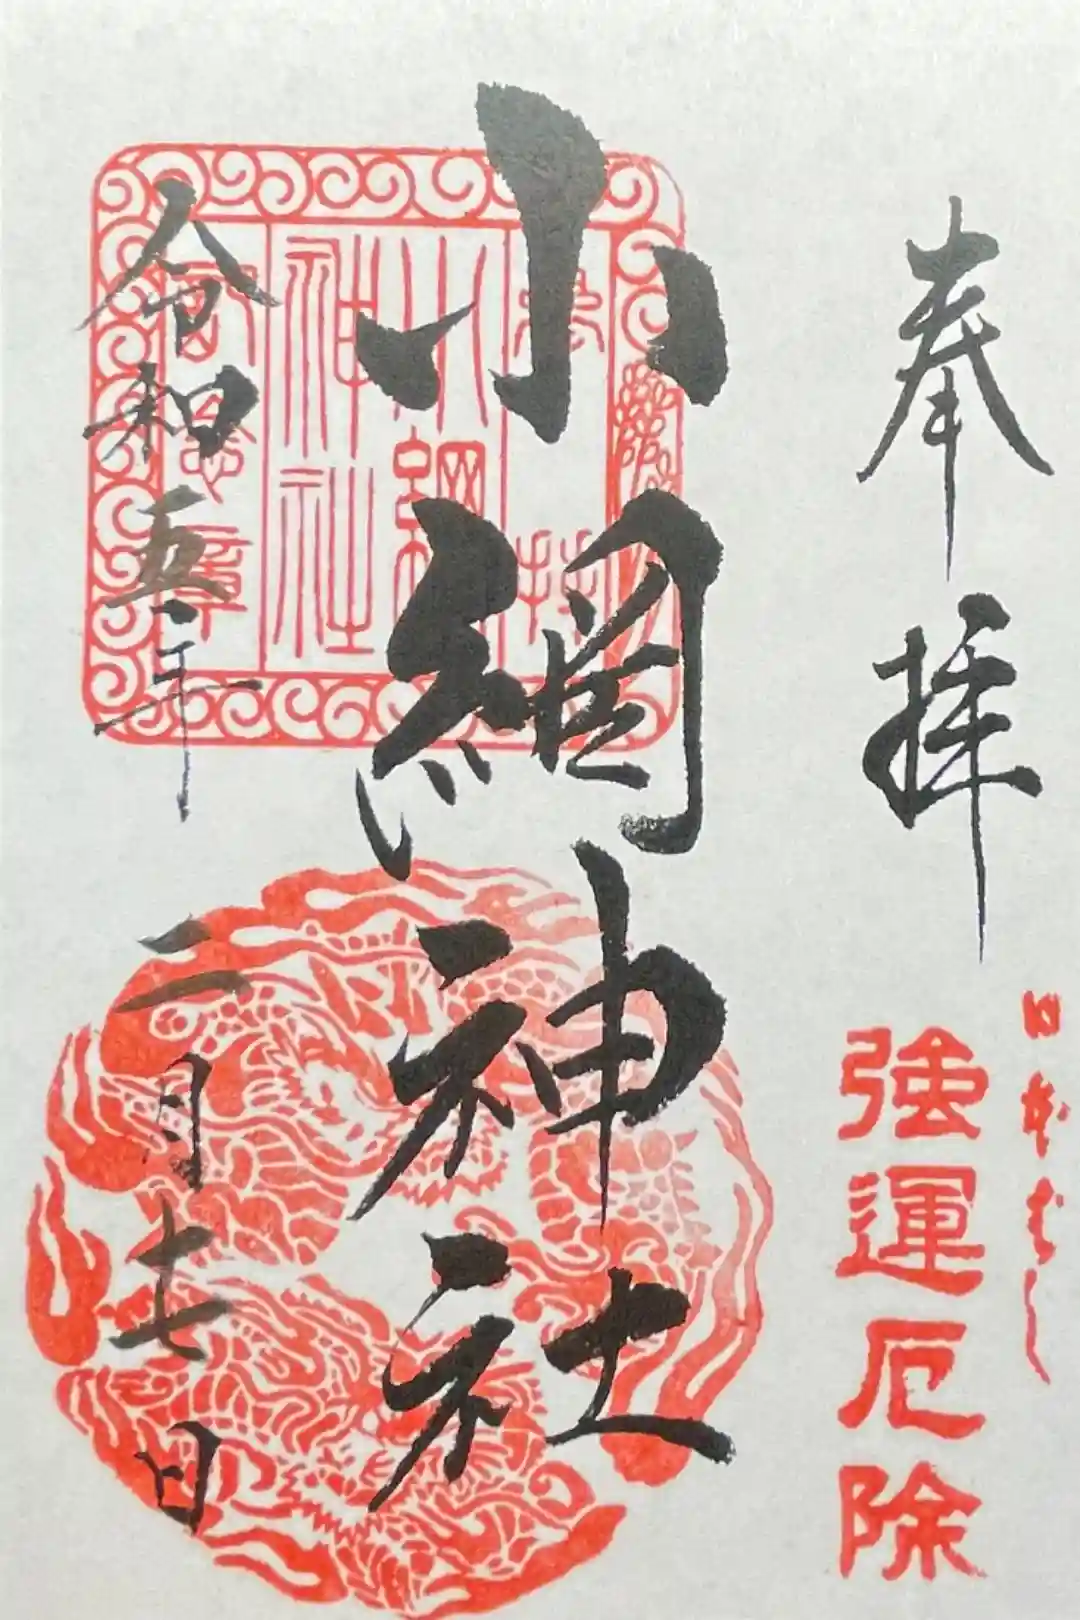 奉拝
日本ばし
強運厄除
小網神社
小網
神社
令和五年二月十七日